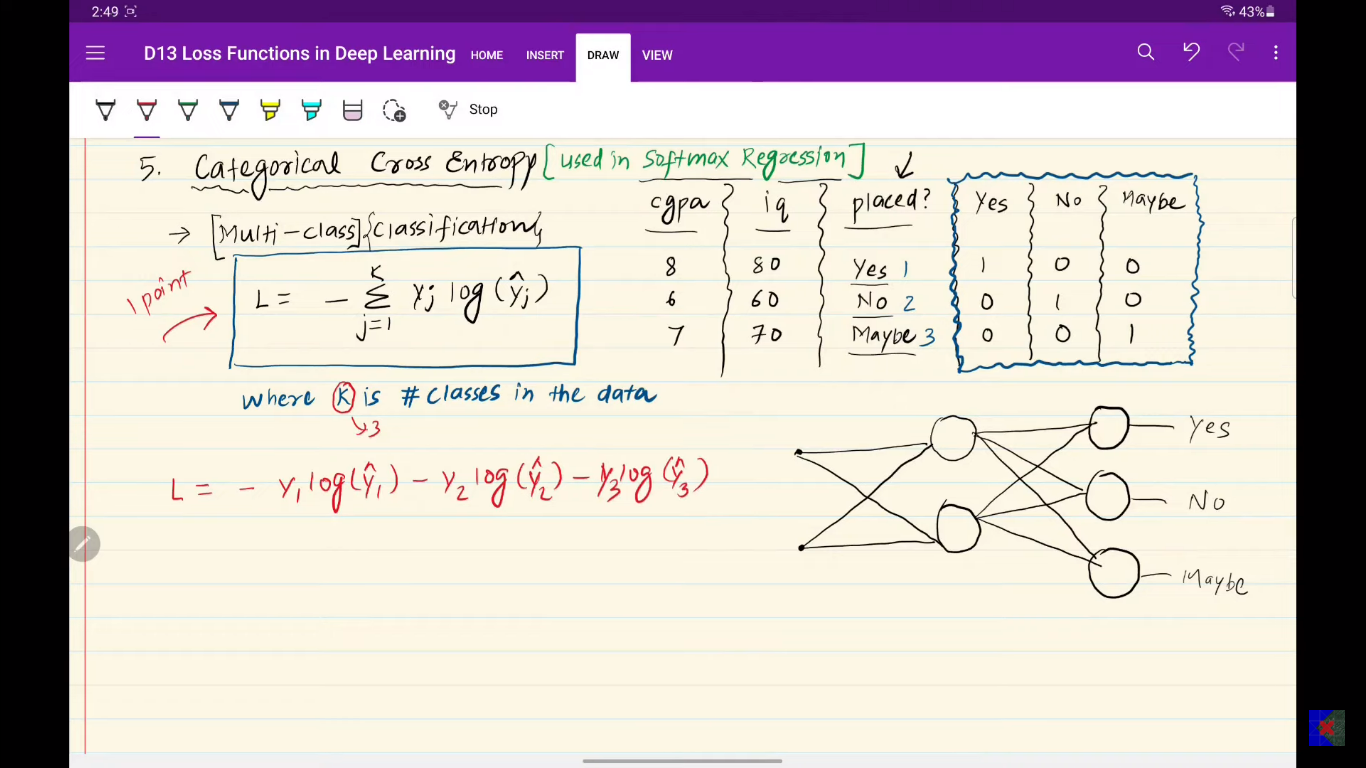 2:49 43%
D13 Loss Functions in Deep Learning HOME INSERT DRAW VIEW
Stop
5. Categorical Cross Entropy [used in Softmax Regression]
→ [Multi-class] {Classification}
1 point
L = - K Σ j=1 Yj log(ŷj)
where K is # classes in the data
↳3
L = - Y₁ log(ŷ₁) - Y₂ log(ŷ₂) - Y₃ log(ŷ₃)
cgpa iq placed? Yes No Maybe
8 80 Yes 1 1 0 0
6 60 No 2 0 1 0
7 70 Maybe 3 0 0 1
Yes
No
Maybe